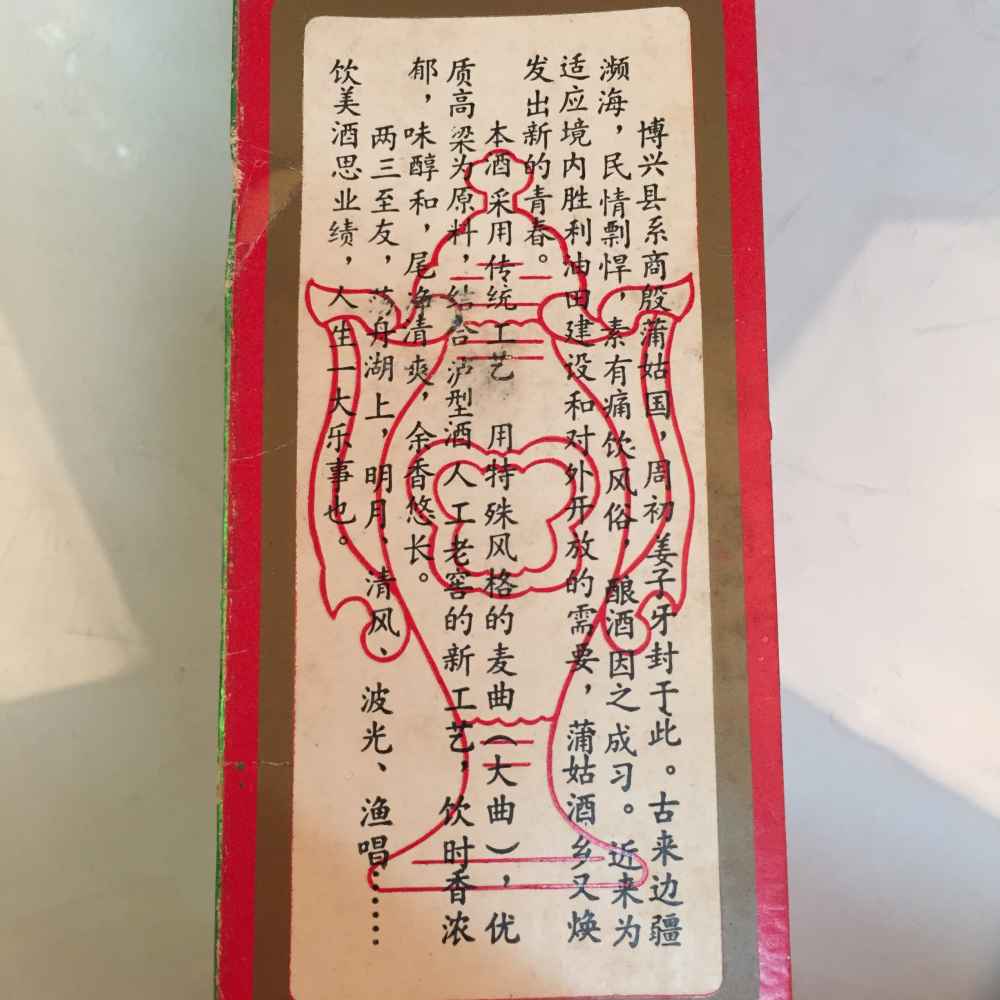 博兴县系商殷蒲姑国，周初姜子牙封于此。古来边疆
濒海，民情剽悍，素有痛饮风俗，酿酒因之成习。近来为
适应境内胜利油田建设和对外开放的需要，蒲姑酒乡又焕
发出新的青春。
本酒采用传统工艺 用特殊风格的麦曲（大曲），优
质高梁为原料，结合泸型酒人工老窖的新工艺，饮时香浓
郁，味醇和，尾净清爽，余香悠长。
两三至友，荡舟湖上，明月、清风、波光、渔唱……
饮美酒思业绩，人生一大乐事也。